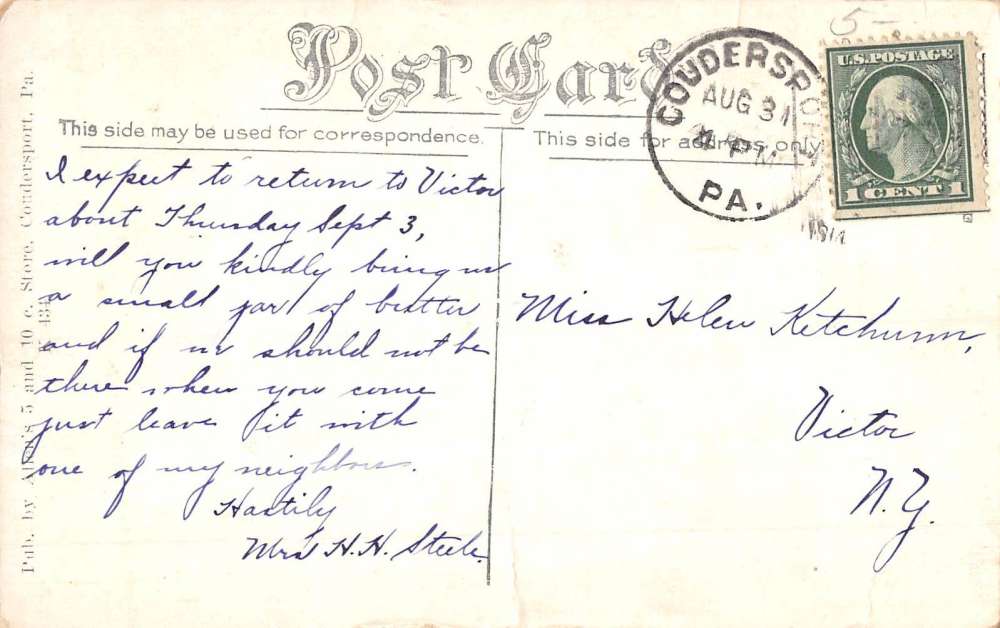 Post Card
This side may be used for correspondence.
This side for address only
I expect to return to Victor
about Thursday Sept 3,
will you kindly bring us
a small jar of butter
and if we should not be
there when you come
just leave it with
one of my neighbors.
Hastily
Mrs H. H. Steele.
Miss Helen Ketchum,
Victor
N. Y.
COUDERSPORT
AUG 31
4 PM
PA.
1914
U.S. POSTAGE
1 CENT 1
5-
Pub. by Allen's 5 and 10 c. Store, Coudersport, Pa.